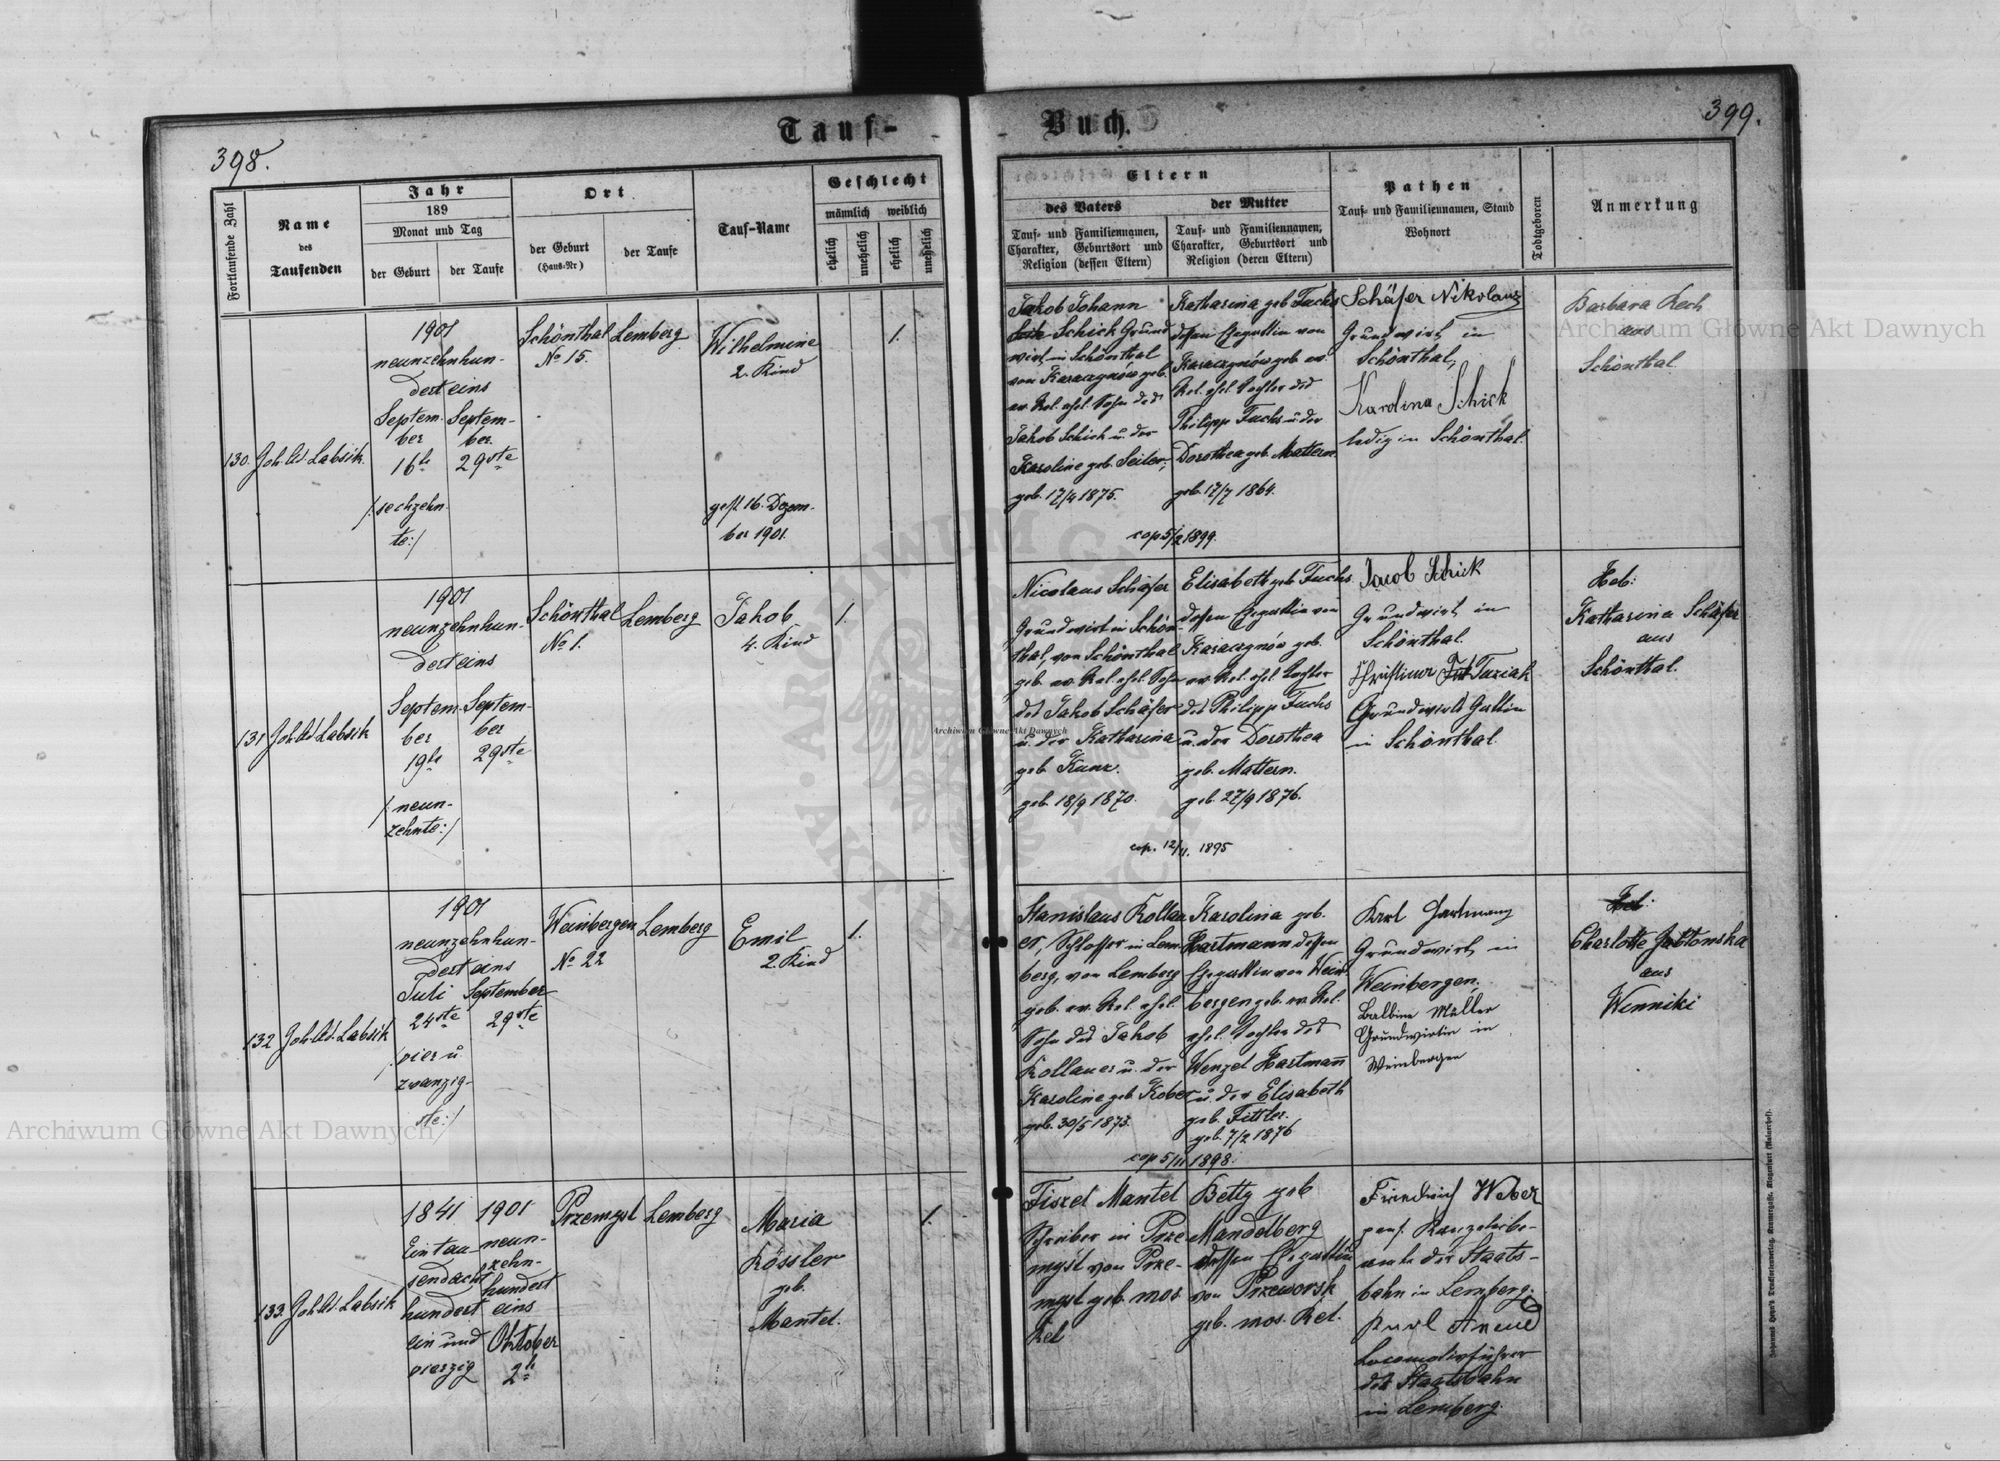 Tauf-
Buch.
398.
399.
Fortlaufende Zahl
Name
des
Taufenden
Jahr
189
Monat und Tag
der Geburt
der Taufe
Ort
der Geburt
(Haus-Nr)
der Taufe
Tauf-Name
Geschlecht
männlich
weiblich
ehelich
unehelich
ehelich
unehelich
Eltern
des Vaters
Tauf- und Familiennamen,
Charakter, Geburtsort und
Religion (dessen Eltern)
der Mutter
Tauf- und Familiennamen,
Charakter, Geburtsort und
Religion (deren Eltern)
Pathen
Tauf- und Familiennamen, Stand
Wohnort
Todtgeboren
Anmerkung
130.
Joh. Ad. Labsik.
1901
neunzehnhun-
dert eins
Septem-
ber
16te
/:sechzehn-
te:/
Septem-
ber
29ste
Schönthal
No 15.
Lemberg
Wilhelmine
2. Kind
gest 16. Dezem-
ber 1901.
1.
Jakob Johann
Schick Grund
wirt in Schönthal
von Karaczynów geb.
ev. Rel. ehel. Sohn des
Jakob Schick u. der
Karoline geb. Seiler;
geb. 17/4 1875.
Katharina geb Fuchs
dessen Ehegattin von
Karaczynów geb. ev.
Rel. ehel. Tochter des
Philipp Fuchs u der
Dorothea geb. Mattern
geb. 17/7 1864.
cop 5/2 1899.
Schäfer Nikolaus
Grundwirt in
Schönthal,
Karolina Schick
ledig in Schönthal.
Barbara Rech
aus
Schönthal.
131
Joh. Ad. Labsik
1901
neunzehnhun-
dert eins
Septem-
ber
19te
/:neun-
zehnte:/
Septem-
ber
29ste
Schönthal
No 1.
Lemberg
Jakob
4. Kind
1.
Nicolaus Schäfer
Grundwirt in Schön-
thal, von Schönthal
geb. ev. Rel. ehel. Sohn
des Jakob Schäfer
u. der Katharina
geb. Kunz.
geb. 18/9 1870.
Elisabeth geb Fuchs
dessen Ehegattin von
Karaczynów geb.
ev. Rel. ehel. Tochter
des Philipp Fuchs
u. der Dorothea
geb. Mattern.
geb. 27/9 1876.
cop. 12/11. 1895
Jacob Schick
Grundwirt in
Schönthal.
Christina Taziak
Grundwirts Gattin
in Schönthal.
Heb:
Katharina Schäfer
aus
Schönthal.
132
Joh. Ad. Labsik
1901
neunzehnhun-
dert eins
Juli
24ste
/:vier u.
zwanzig-
ste:/
September
29ste
Weinbergen
No 22
Lemberg
Emil
2. Kind
1.
Stanislaus Kollau
er, Schlosser in Lem
berg, von Lemberg
geb. ev. Rel. ehel.
Sohn des Jakob
Kollauer u. der
Karoline geb Kober
geb. 30/5 1873.
Karolina geb.
Hartmann dessen
Ehegattin von Wein
bergen geb. ev. Rel.
ehel. Tochter des
Wenzel Hartmann
u. der Elisabeth
geb. Fittler.
geb. 7/2 1876
cop 5/11 1898.
Karl Hartmann
Grundwirt, in
Weinbergen,
Balbine Müller
Grundwirtin in
Weinbergen
Heb:
Charlotte Jabłonska
aus
Winniki
133.
Joh. Ad. Labsik
1841
Ein tau-
sendacht
hundert
ein und
vierzig
1901
neun-
zehn-
hundert
eins
Oktober
2te
Przemysl
Lemberg
Maria
Kössler
geb.
Mantel.
1.
Fiszel Mantel
Schreiber in Prze
mysl von Prze-
mysl geb. mos.
Rel
Betty geb
Mandelberg
dessen Ehegattin
von Przeworsk
geb. mos. Rel.
Friedrich Weber
pens. Kanzleibe-
amte der Staats-
bahn in Lemberg;
Karl Arend
Locomotivführer
der Staatsbahn
in Lemberg.
Archiwum Główne Akt Dawnych
Archiwum Główne Akt Dawnych
Archiwum Główne Akt Dawnych